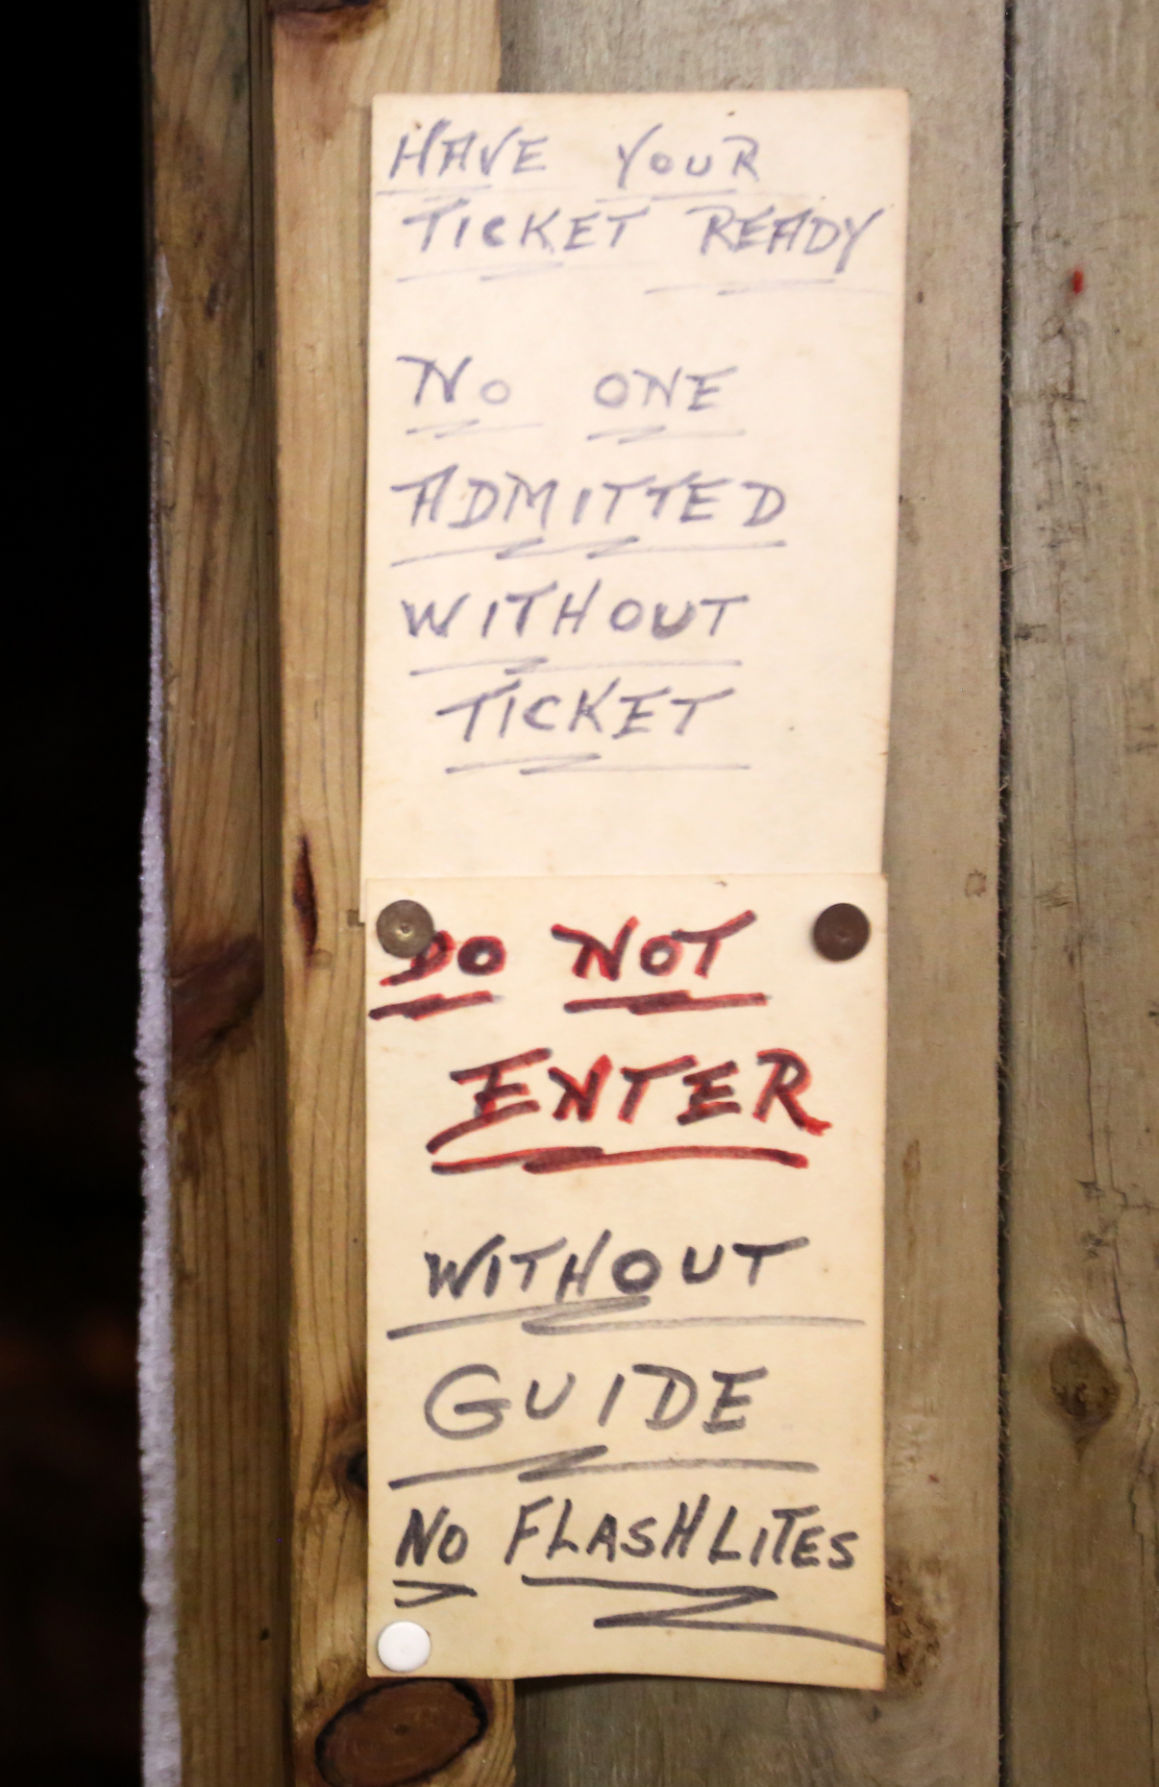 HAVE YOUR
TICKET READY
NO ONE
ADMITTED
WITHOUT
TICKET
DO NOT
ENTER
WITHOUT
GUIDE
NO FLASHLITES